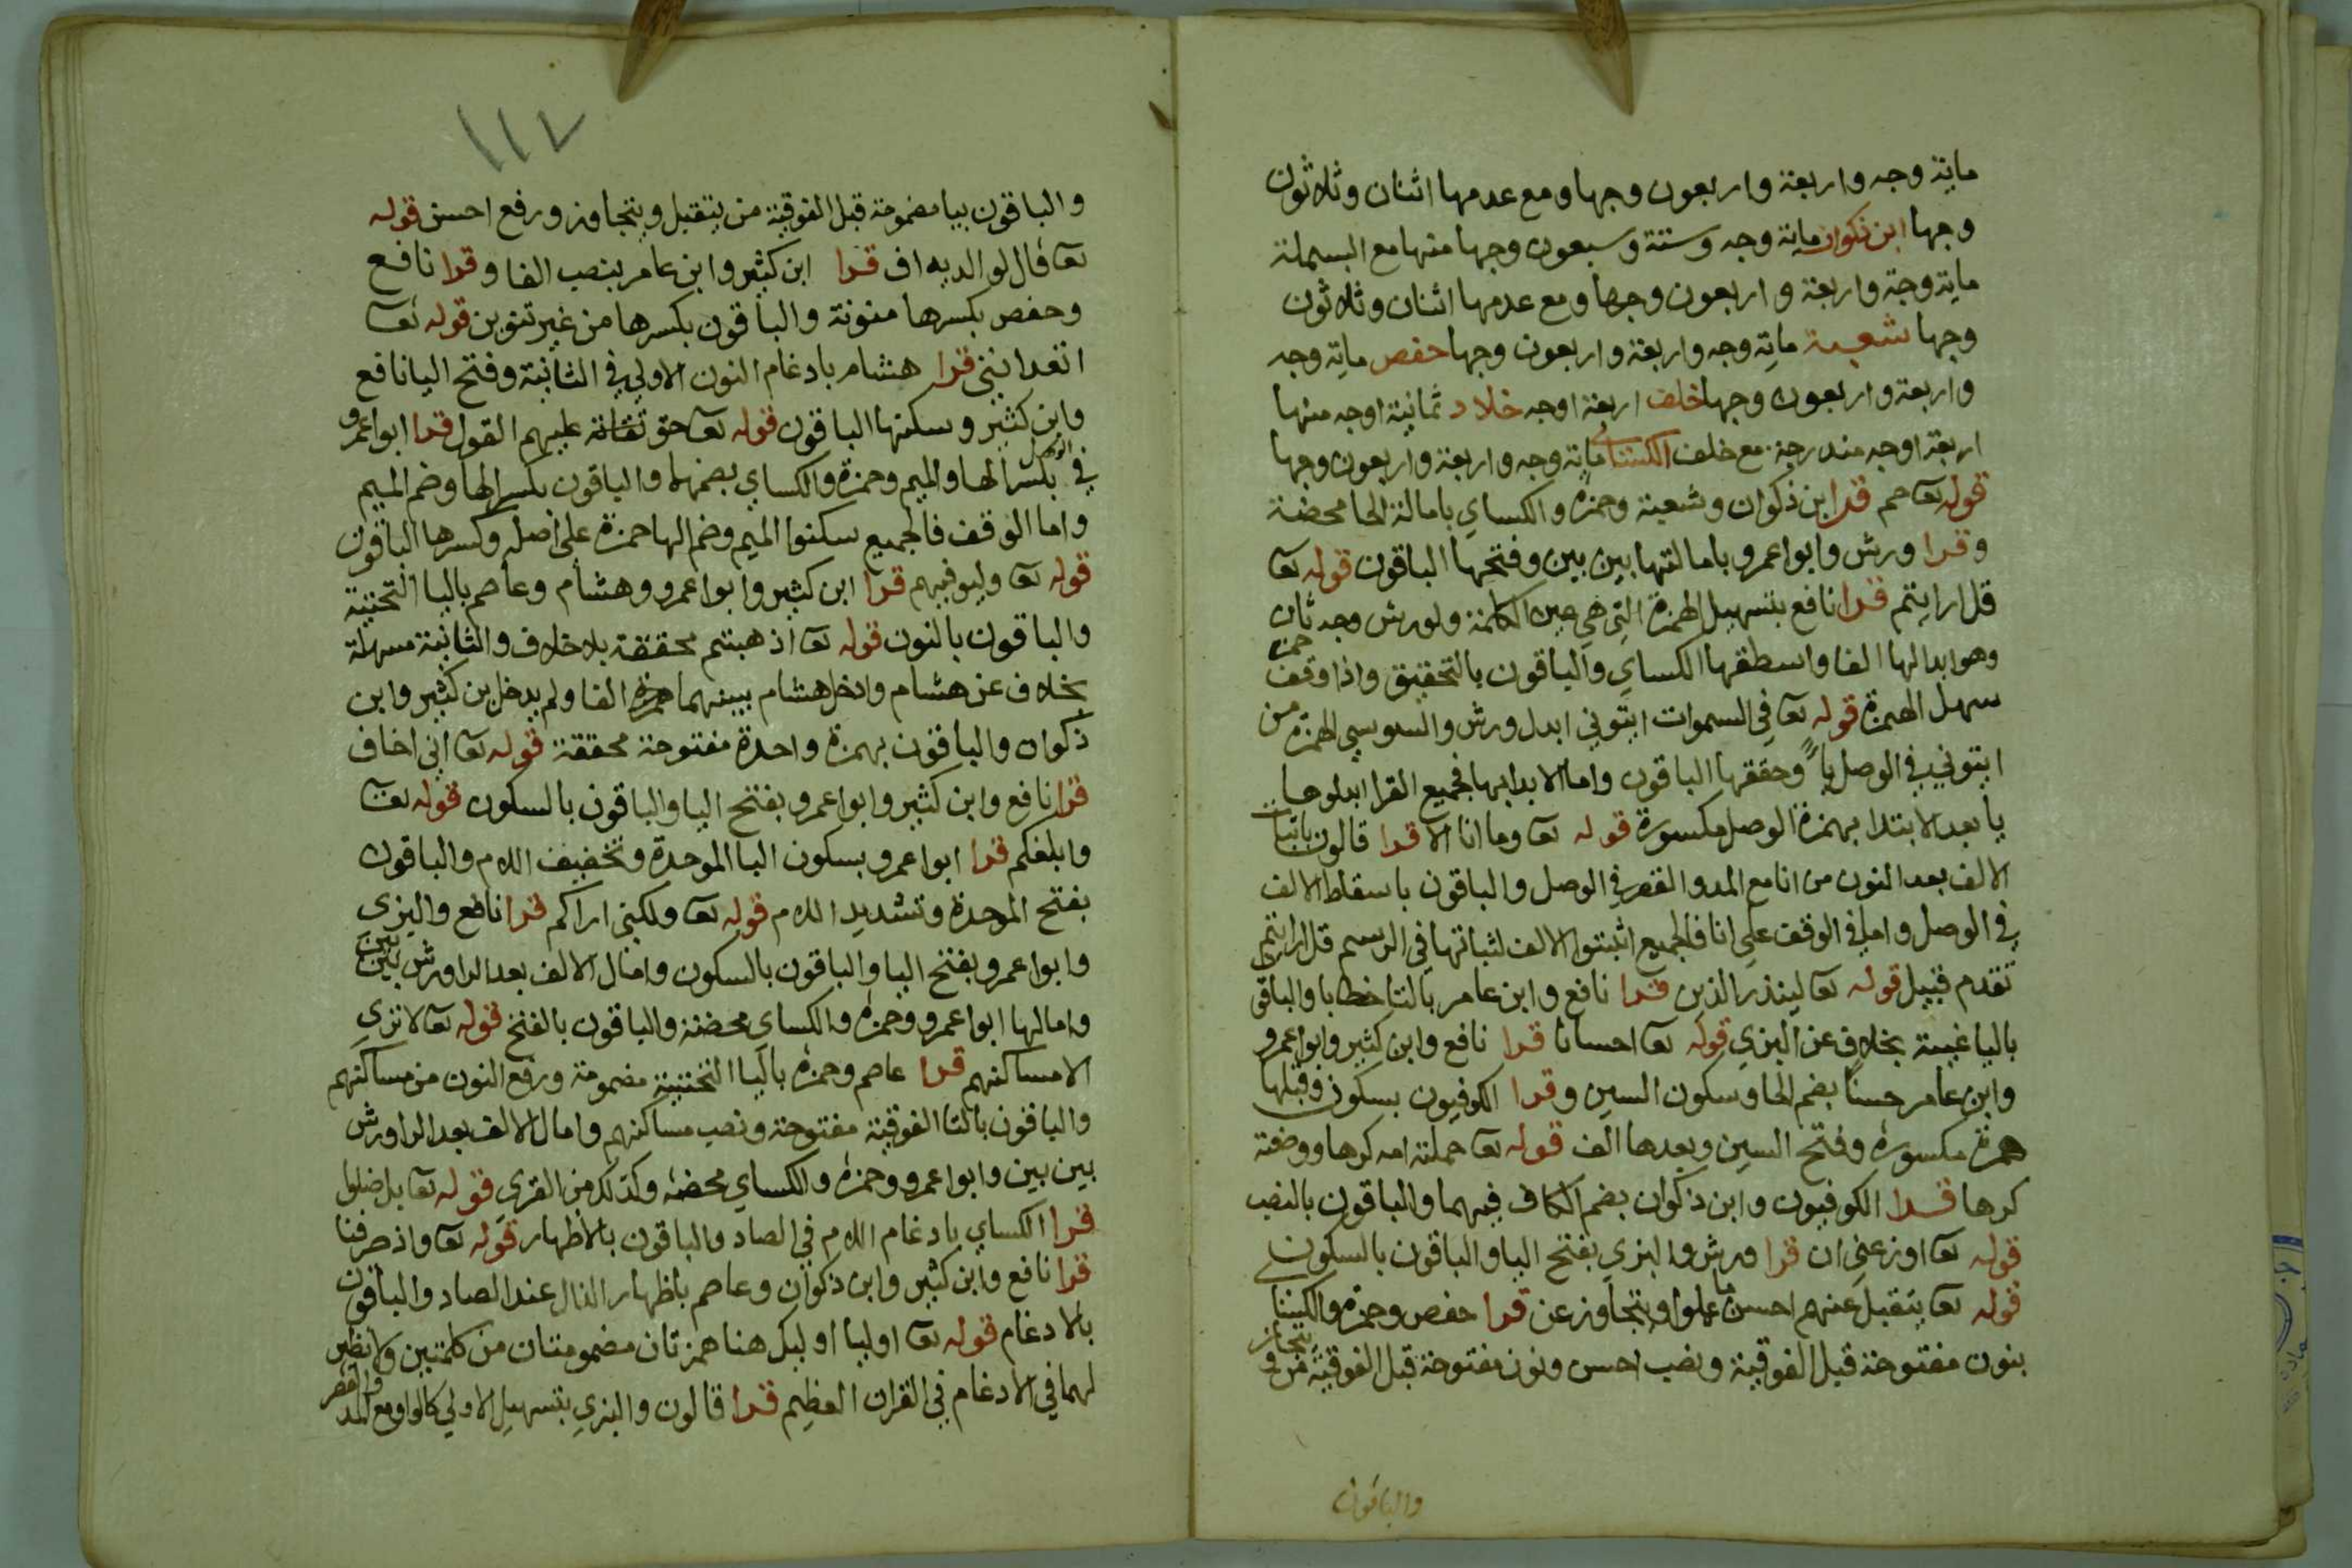 ماية وجه واربعة واربعون وجها ومع عدمها اثنان وثلاثون
وجها ابن ذكوان ماية وجه وستة وسبعون وجها منها مع البسملة
ماية وجة واربعة واربعون وجها ومع عدمها اثنان وثلاثون
وجها شعبة ماية وجه واربعة واربعون وجها حفص ماية وجه
واربعة واربعون وجها خلف اربعة اوجه خلاد ثمانية اوجه منها
اربعة اوجه مندرجة مع خلف الكسائي ماية وجه واربعة واربعون وجها
قوله تعا حم قرا ابن ذكوان وشعبة وحمزة والكساي بامالة الحا محضة
وقرا ورش وابوا عمرو بامالتها بين بين وفتحها الباقون قوله تعا
قل ارايتم قرا نافع بتسهيل الهمزة التي هي عين الكلمة ولورش وجه ثان
وهو ابدالها الفا واسطقها الكساي والباقون بالتحقيق واذا وقف حمزة
سهل الهمزة قوله تعا في السموات ايتوني ابدل ورش والسوسي الهمزة من
ايتوني في الوصل ياً وحققها الباقون واما الابدا بها فجميع القرا ابدلوها
يا بعد الابتدا بهمزة الوصل مكسورة قوله تعا وما انا الا قرا قالون باثبات
الالف بعد النون من انا مع المد والقصر في الوصل والباقون باسقاط الالف
في الوصل واما في الوقف على انا فالجميع اثبتوا الالف لثباتها في الرسم قل ارايتم
تقدم قبيل قوله تعا لينذر الذين قرا نافع وابن عامر بالتا خطابا والباقي
باليا غيبة بخلاف عن البزي قوله تعا احسانا قرا نافع وابن كثير وابوا عمرو
وابن عامر حسنًا بضم الحا وسكون السين وقرا الكوفيون بسكون وقبلها
همزة مكسورة وفتح السين وبعدها الف قوله تعا حملته امه كرها ووضعته
كرها قرا الكوفيون وابن ذكوان بضم الكاف فيهما والباقون بالنصب
قوله تعا اوزعني ان قرا ورش والبزي بفتح اليا والباقون بالسكون
قوله تعا يتقبل عنهم احسن ما عملوا ويتجاوز عن قرا حفص وحمزة والكينا
بنون مفتوحة قبل الفوقية ونصب احسن ونون مفتوحة قبل الفوقية من ويتجاوز
والباقون
١١٢
والباقون بيا مضمومة قبل الفوقية من يتقبل ويتجاوز ورفع احسن قوله
تعا قال لوالديه اف قرا ابن كثير وابن عامر بنصب الفا وقرا نافع
وحفص بكسرها منونة والباقون بكسرها من غير تنوين قوله تعا
اتعدانني قرا هشام بادغام النون الاولي في الثانية وفتح اليا نافع
وابن كثير وسكنها الباقون قوله تعا حق عليهم القول قرا ابوا عمرو
في الوصل بكسر الها والميم وحمزة والكساي بضمهما والباقون بكسر الها وضم الميم
واما الوقف فالجميع سكنوا الميم وضم الها حمزة على اصله وكسرها الباقون
قوله تعا وليوفيهم قرا ابن كثير وابوا عمرو وهشام وعاصم باليا التحتية
والباقون بالنون قوله تعا اذهبتم محققة بلا خلاف والثانية مسهلة
بخلاف عن هشام وادخل هشام بينهما همزة الفا ولم يدخل بن كثير وابن
ذكوان والباقون بهمزة واحدة مفتوحة محققة قوله تعا اني اخاف
قرا نافع وابن كثير وابوا عمرو بفتح اليا والباقون بالسكون قوله تعا
وابلغكم قرا ابوا عمرو بسكون البا الموحدة وتخفيف اللام والباقون
بفتح الموحدة وتشديد اللام قوله تعا ولكني اراكم قرا نافع والبزي
وابوا عمرو بفتح اليا والباقون بالسكون وامال الالف بعد الرا ورش بين بين
وامالها ابوا عمرو وحمزة والكساي محضة والباقون بالفتح قوله تعا لا تري
الا مساكنهم قرا عاصم وحمزة باليا التحتية مضمومة ورفع النون من مساكنهم
والباقون بالتا الفوقية مفتوحة ونصب مساكنهم وامال الالف بعد الرا ورش
بين بين وابوا عمرو وحمزة والكساي محضة وكذلك من القري قوله تعا بل ضلوا
قرا الكساي بادغام اللام في الصاد والباقون بالاظهار قوله تعا واذ صرفنا
قرا نافع وابن كثير وابن ذكوان وعاصم باظهار الذال عند الصاد والباقون
بالادغام قوله تعا اوليا اوليك هنا همزتان مضمومتان من كلمتين ولا نظير
لهما في الادغام في القران العظيم قرا قالون والبزي بتسهيل الاولي كالواو مع المد والقصر